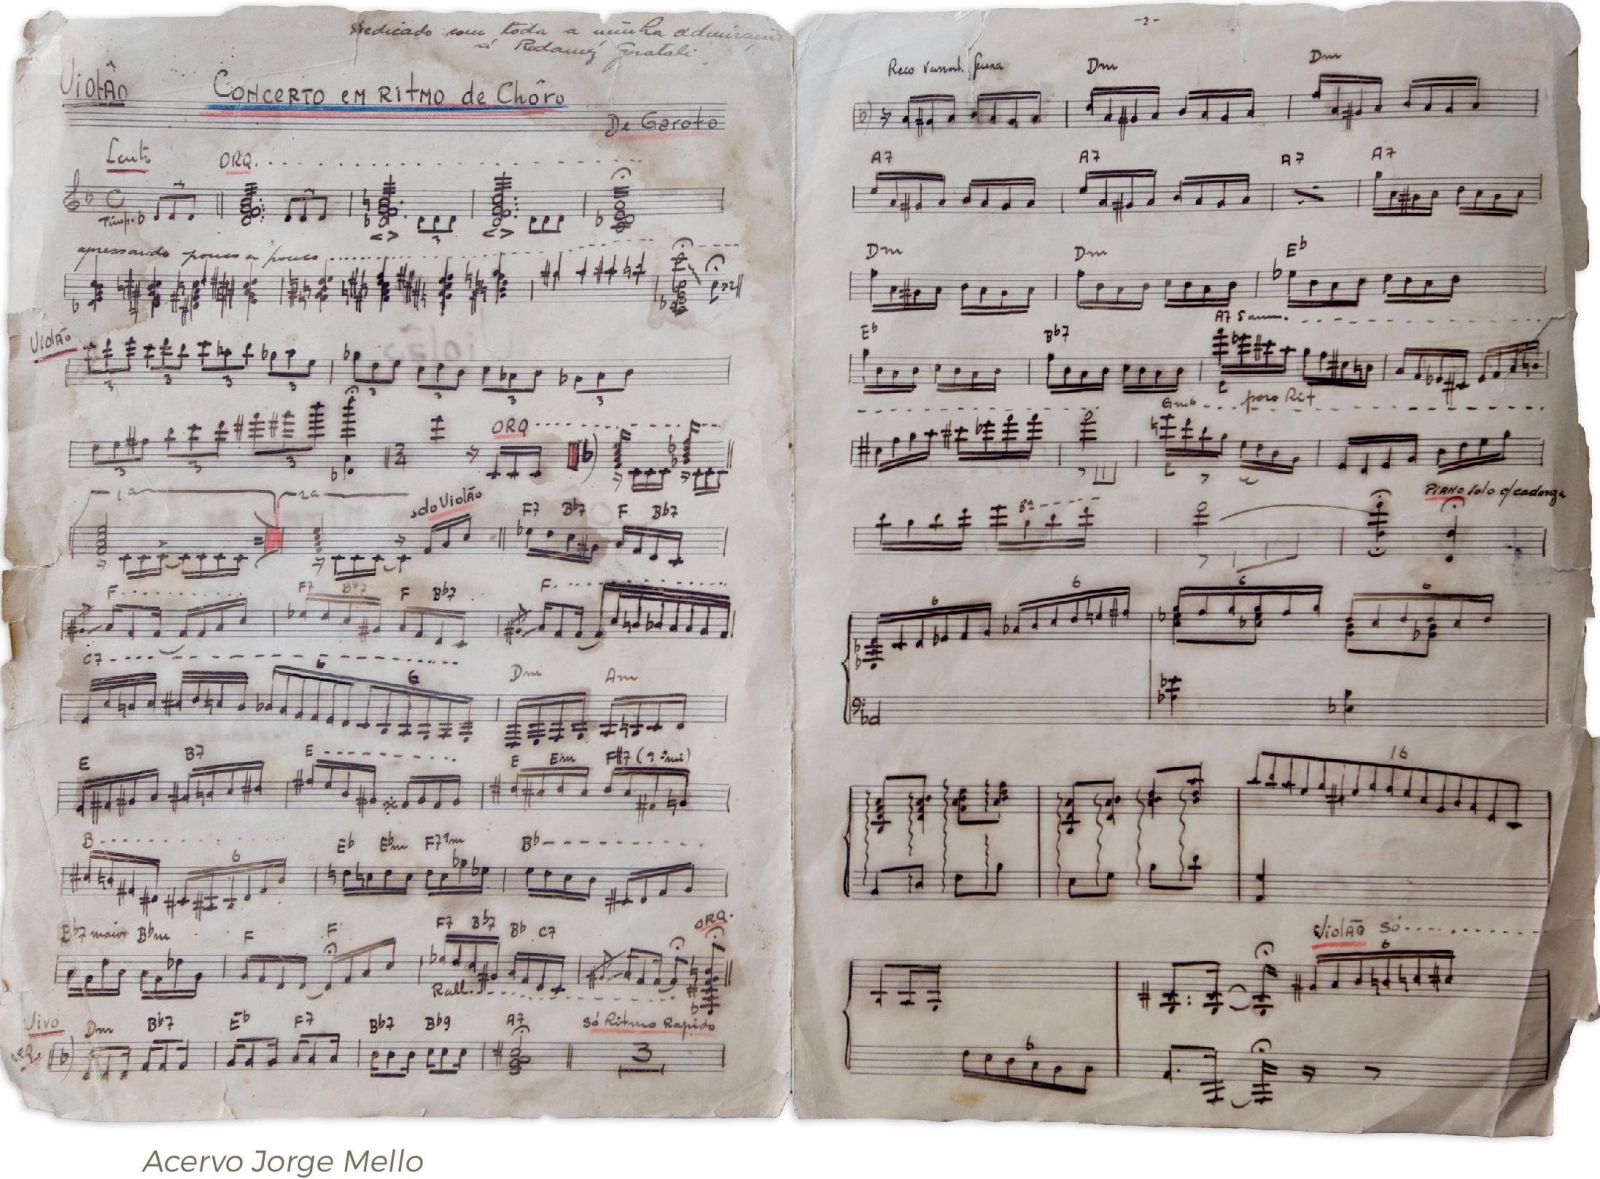 Dedicado com toda a minha admiração
á Radamés Gnatali.
Violão
CONCERTO EM RITMO de CHÔRO
De Garoto
Lento ORQ.
Timp.
apressando pouco a pouco
Violão
3 3 3 3 3 3 3
ORQ
3 3 3 2
1a 2a
solo Violão
F7 Bb7 F Bb7
F F7 Bb7 F Bb7 F
C7 6 6 Dm Am
E B7 E E Em F#7
B 6 Eb Ebm F7 9m Bb
Bb7 maior Bbm F F F7 Bb7 Bb C7 ORQ.
Rall.
Vivo
ORQ. Dm Bb7 Eb F7 Bb7 Bb9 A7 Só Ritmo Rapido
3
-2-
Dm Dm
A7 A7 A7 A7
Dm Dm Eb
Eb Bb7 A7
poro Rit
8a
PIANO solo c/cadenza
6 6 6 6
16
Violão Só
6
6
Acervo Jorge Mello